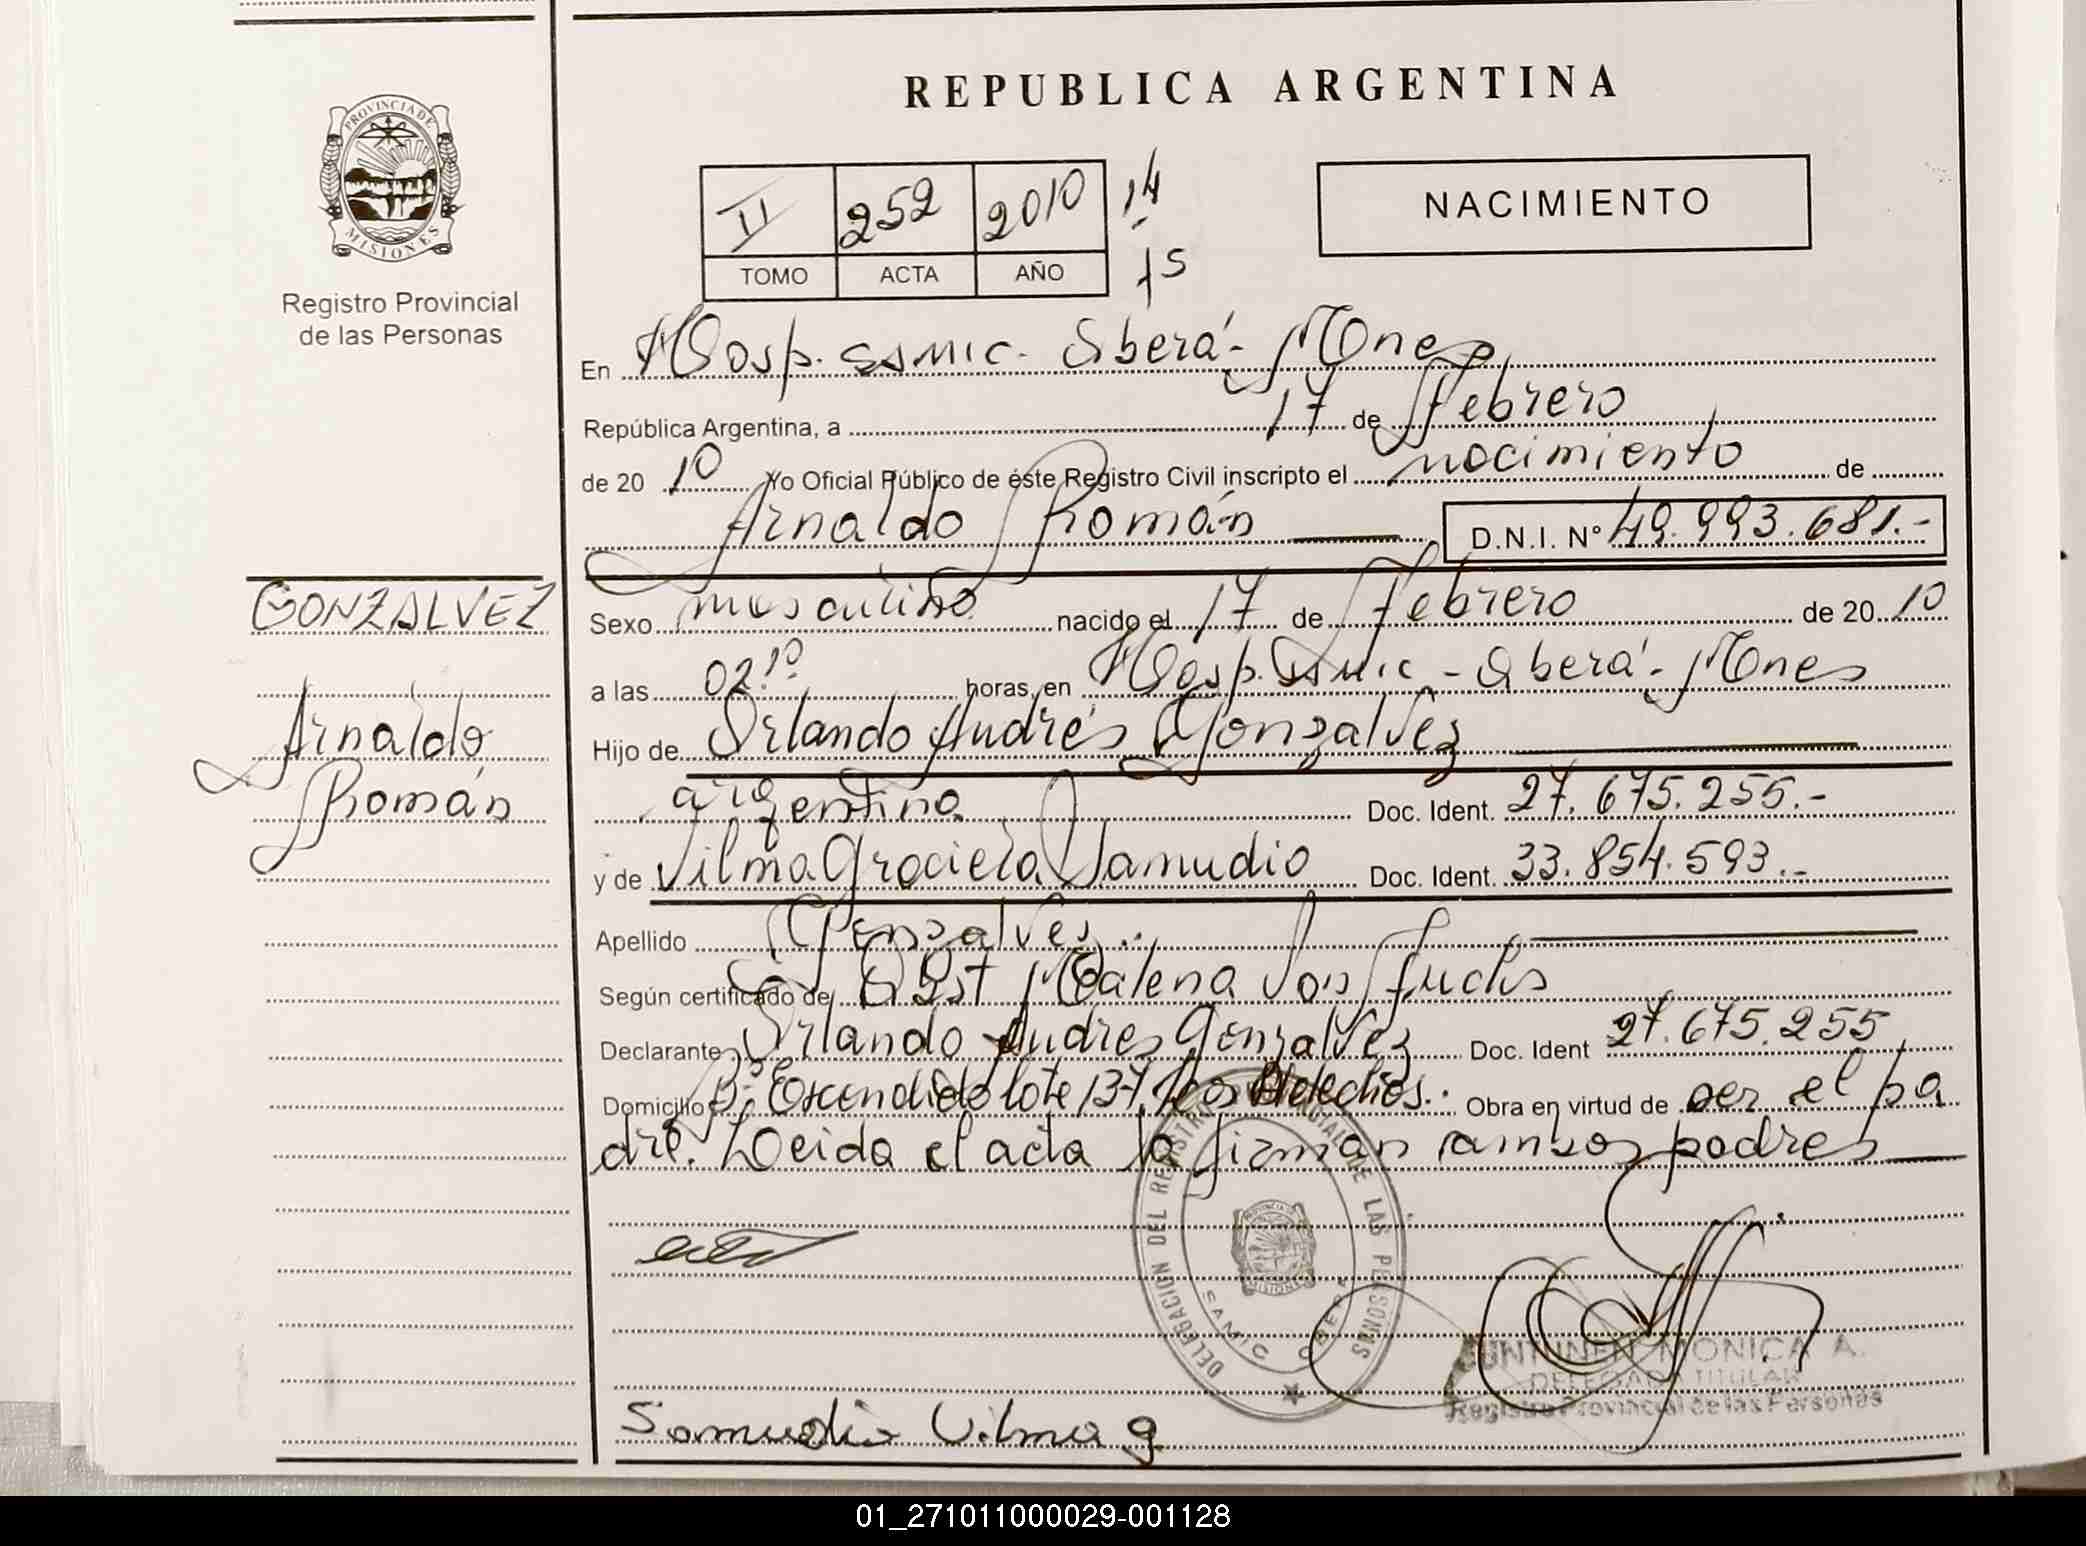 REPUBLICA ARGENTINA
PROVINCIA DE
MISIONES
Registro Provincial
de las Personas
II 252 2010 14
TOMO ACTA AÑO 15
NACIMIENTO
En Hosp. SAMIC. Oberá - Mnes
República Argentina, a 17 de Febrero
de 2010 Yo Oficial Público de éste Registro Civil inscripto el nacimiento de
Arnaldo Román D.N.I. Nº 49.993.681.-
GONZALVEZ
Arnaldo
Román
Sexo masculino nacido el 17 de Febrero de 2010
a las 02.10 horas, en Hosp. Samic - Oberá - Mnes
Hijo de Orlando Andrés Gonzalvez
argentina Doc. Ident. 27.675.255.-
y de Vilma Graciela Samudio Doc. Ident. 33.854.593.-
Apellido Gonzalvez.
Según certificado de Obst Malena
Declarante Orlando Andres Gonzalvez Doc. Ident 27.675.255
Domicilio Bº Escondido lote 137 Los Helechos. Obra en virtud de ser el pa
dre. Leida el acta la firman ambos padres
DELEGACION DEL REGISTRO PROVINCIAL DE LAS PERSONAS
SAMIC OBERA
MONICA A.
DELEGADA TITULAR
Registro Provincial de las Personas
Samudio Vilma g
01_271011000029-001128